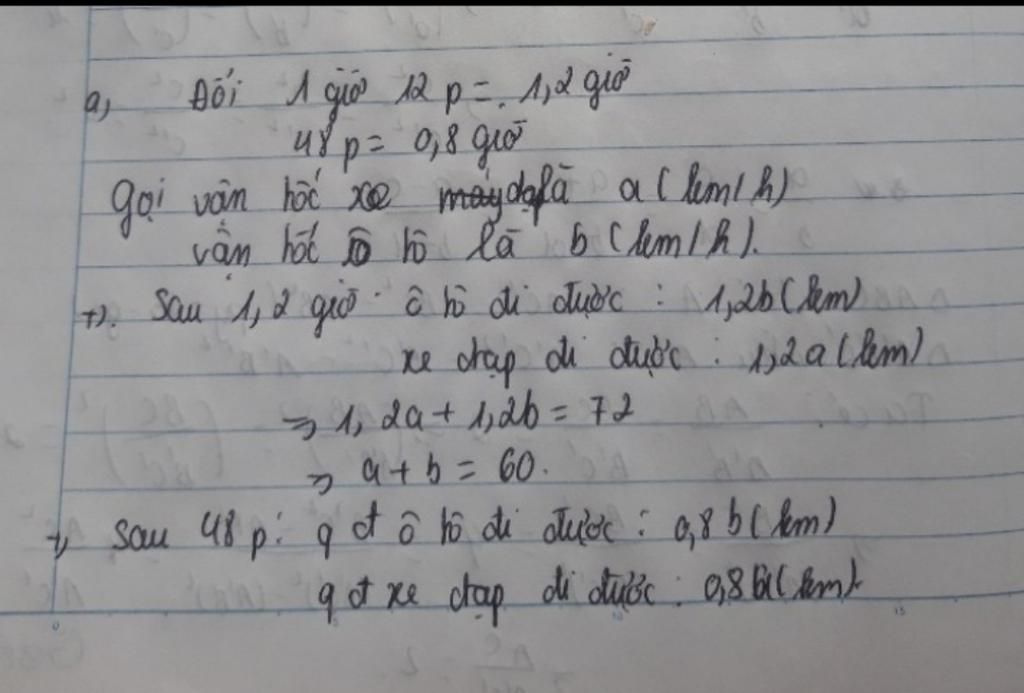 a, Đổi 1 giờ 12 p = 1,2 giờ
48 p = 0,8 giờ
Gọi vận tốc xe đạp là a (km/h)
vận tốc ô tô là b (km/h).
+). Sau 1,2 giờ ô tô đi được : 1,2b (km)
xe đạp đi được : 1,2a (km)
=> 1,2a + 1,2b = 72
=> a + b = 60.
+, Sau 48 p : q đ ô tô đi được : 0,8 b (km)
q đ xe đạp đi được : 0,8a (km)